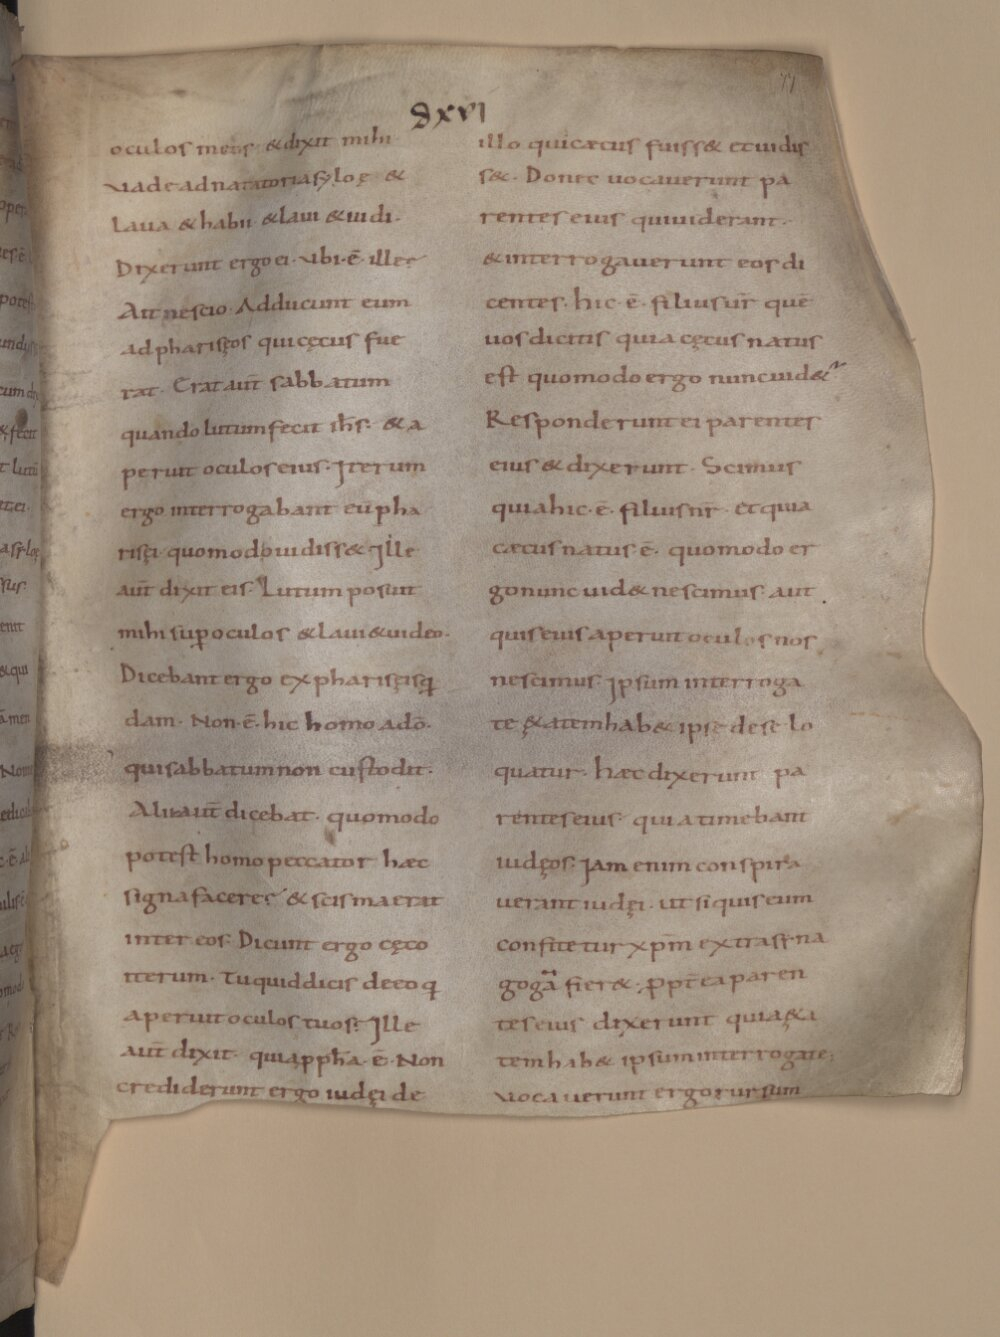 77
ꝯxvi
oculos meos · & dixit mihi
vade ad natatoria syloę &
Laua & habii · & laui & uidi ·
Dixerunt ergo ei · vbi · ē · ille
Ait nescio · Adducunt eum
ad pharisęos qui cęcus fue
rat · Erat aut̄ sabbatum
quando lutum fecit ih̄s · & a
peruit oculos eius · Iterum
ergo interrogabant eū pha
risęi quomodo uidiss& Ille
aut̄ dixit eis · Lutum posuit
mihi suꝑ oculos & laui & uideo ·
Dicebant ergo ex pharisęis q̄
dam · Non · ē · hic homo a dō ·
qui sabbatum non custodit ·
Alii aut̄ dicebāt · quomodo
potest homo peccator hæc
signa facere & scisma erat
inter eos · Dicunt ergo cęco
iterum · Tu quid dicis de eo q̄
aperuit oculos tuos · Ille
aut̄ dixit · quia ꝓph̄a · ē · Non
crediderunt ergo iudęi de
illo qui cæcus fuiss& et uidis
s& · Donec uocauerunt pa
rentes eius qui uiderant ·
& interrogauerunt eos di
centes · hic · ē · filius ur̄ quē
uos dicitis quia cęcus natus
est quomodo ergo nunc uid&
Responderunt ei parentes
eius & dixerunt · Scimus
quia hic · ē · filius nr̄ · et quia
cæcus natus ē · quomodo er
go nunc uid& nescimus · aut
quis eius aperuit oculos nos
nescimus · Ipsum interroga
te ę&atem hab& ipse de se lo
quatur · hæc dixerunt pa
rentes eius quia timebant
iudęos · Iam enim conspira
uerant iudęi · ut si quis eum
confitetur xp̄m extra syna
gogā fier& · ꝓpt̄ea paren
tes eius dixerunt quia ę&a
tem hab& ipsum interrogate ;
Vocauerunt ergo rursum